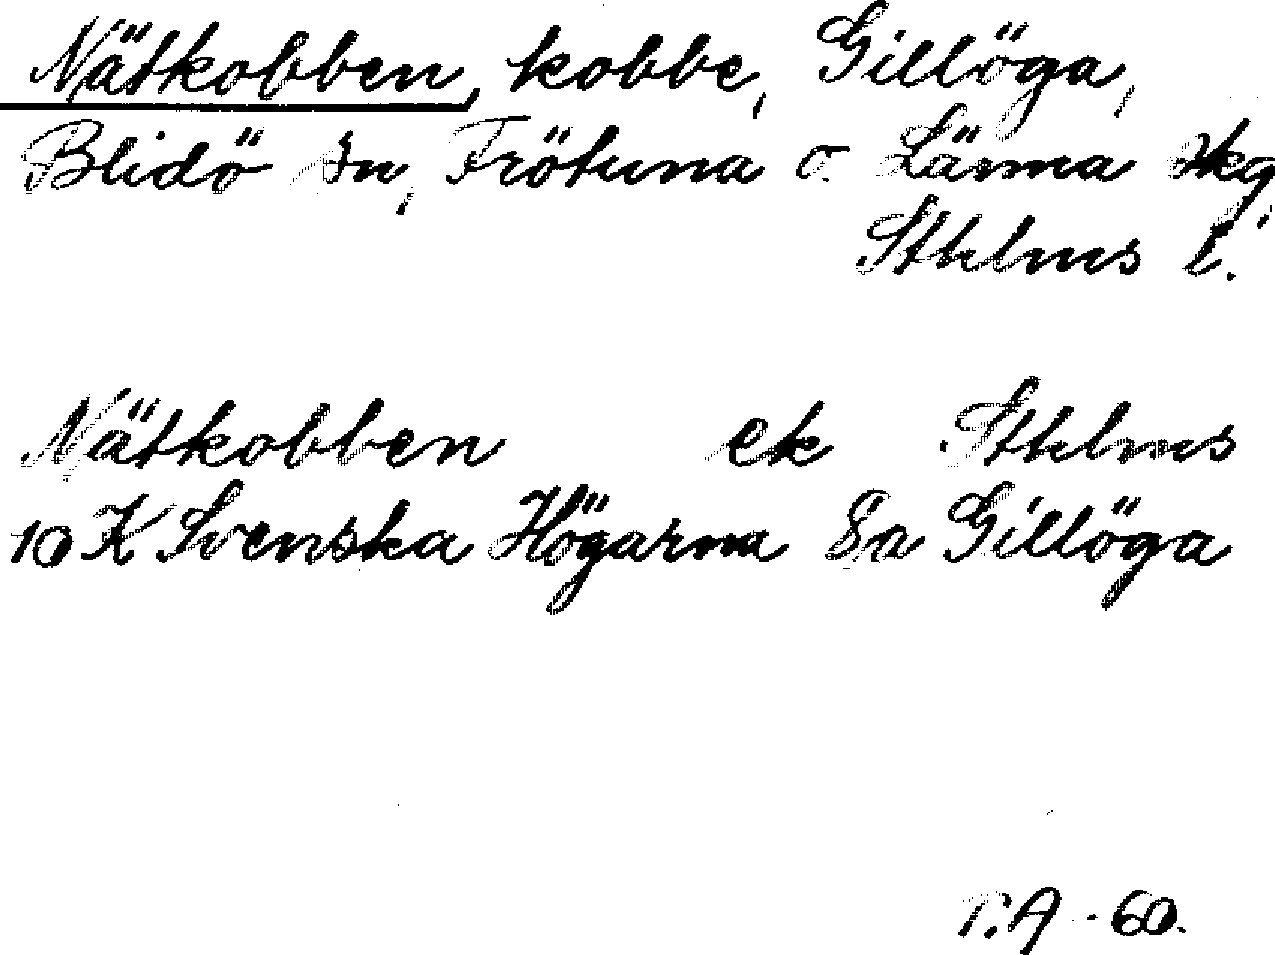 Nätkobben, kobbe, Gillöga,
Blidö sn, Frötuna o. Länna skg,
Sthlms l.
Nätkobben ek Sthlms
10 K Svenska Högarna 8a Gillöga
T.A -60.